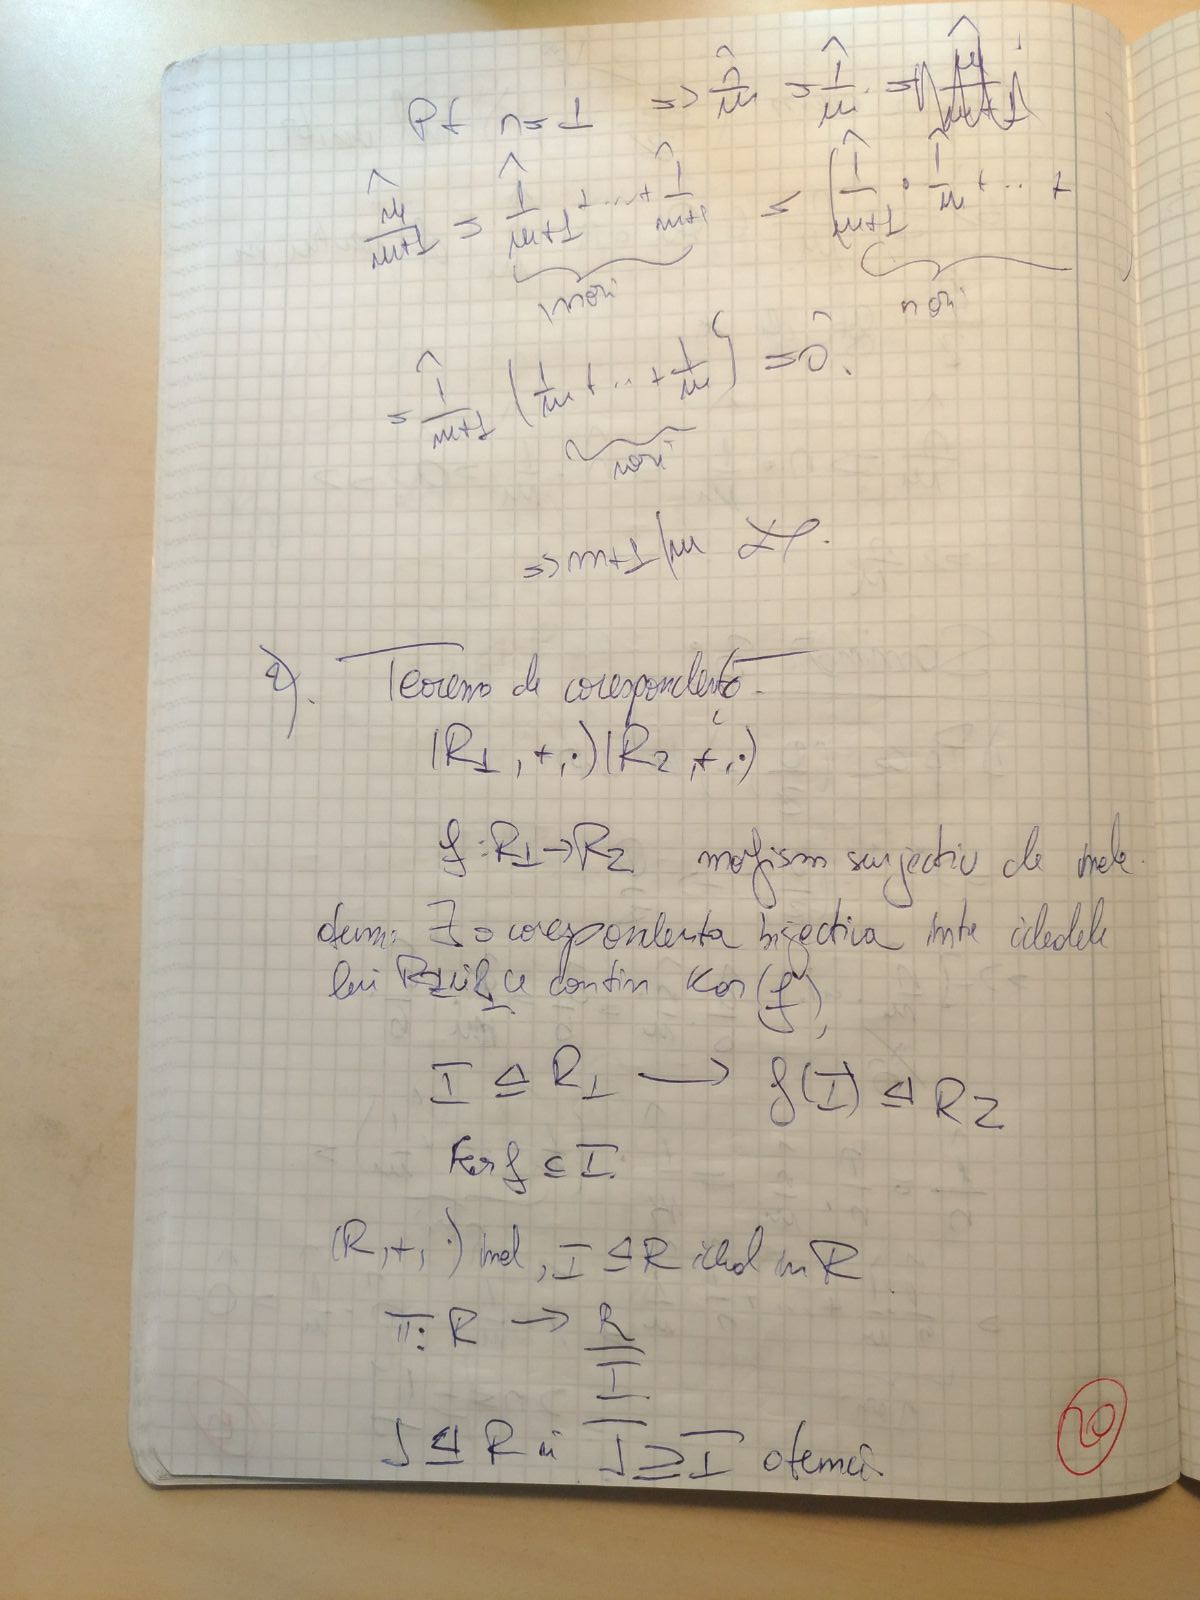 Pt n=1 => n̂/m = 1̂/m
m̂/m+1 = 1̂/m+1 + ... + 1̂/m+1 = (1̂/m+1 · 1̂/m + ... +
m ori n ori
= 1̂/m+1 (1/m + ... + 1/m) = 0̂.
m ori
=> m+1/m
2). Teorema de corespondență
(R1, +, ·) (R2, +, ·)
f: R1 → R2 morfism surjectiv de inele.
dem: ∃ o corespondenta bijectiva intre idealele
lui R1 ce contin Ker(f),
I ⊴ R1 → f(I) ⊴ R2
Ker f ⊆ I.
(R, +, ·) inel, I ⊴ R ideal in R
π: R → R/I
J ⊴ R si J ⊇ I atunci
20